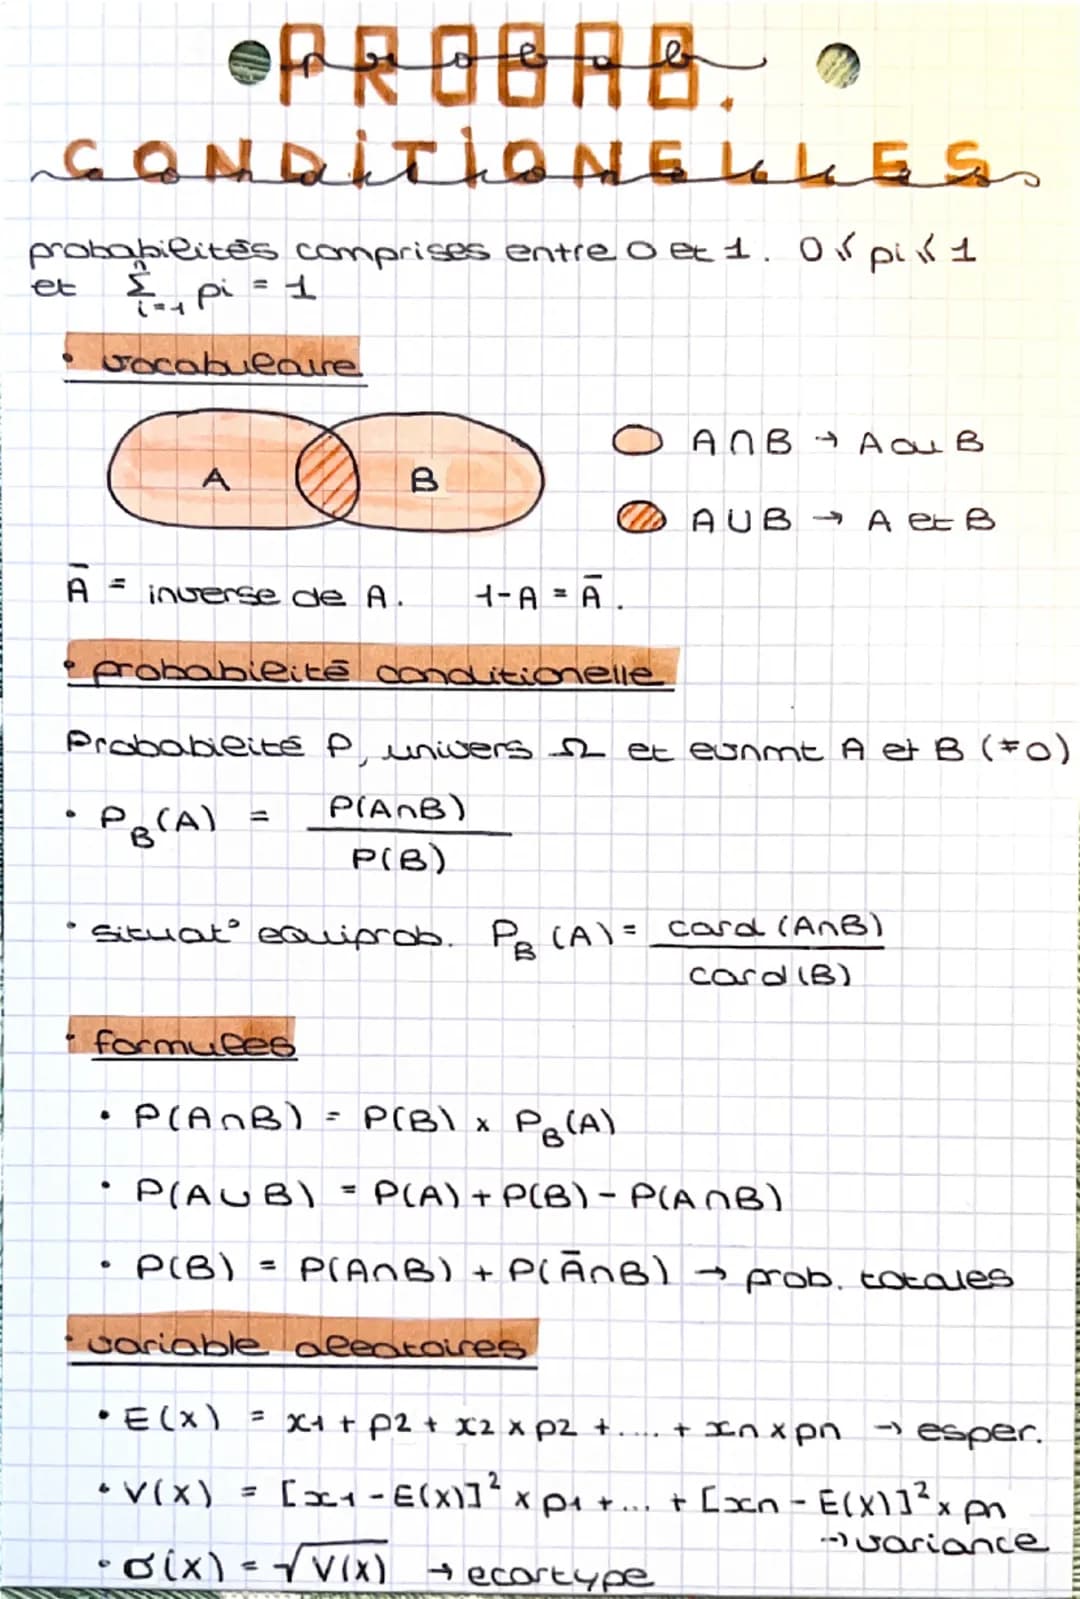 PROBAB.
CONDITIONELLES
probabilités comprises entre 0 et 1. 0 ≤ pi ≤ 1
et n Σ i=1 pi = 1
• vocabulaire
A B
A∩B → A ou B
A∪B → A et B
Ā = inverse de A. 1-A = Ā.
• probabilité conditionelle
Probabilité P, univers Ω et evnmt A et B (≠0)
• P_B(A) = P(A∩B) / P(B)
• situat° equiprob. P_B(A) = card(A∩B) / card(B)
• formules
• P(A∩B) = P(B) x P_B(A)
• P(A∪B) = P(A) + P(B) - P(A∩B)
• P(B) = P(A∩B) + P(Ā∩B) → prob. totales
• variable aleatoires
• E(x) = x1 + p2 + x2 x p2 + .... + xn x pn → esper.
• V(x) = [x1 - E(x)]² x p1 + ... + [xn - E(x)]² x pn
→ variance
• σ(x) = √V(x) → ecartype